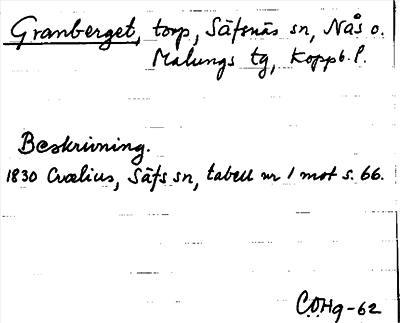 Granberget, torp, Säfsnäs sn, Nås o.
Malungs tg, Koppb. l.
Beskrivning.
1830 Crælius, Säfs sn, tabell nr 1 mot s. 66.
C.O.Hg-62